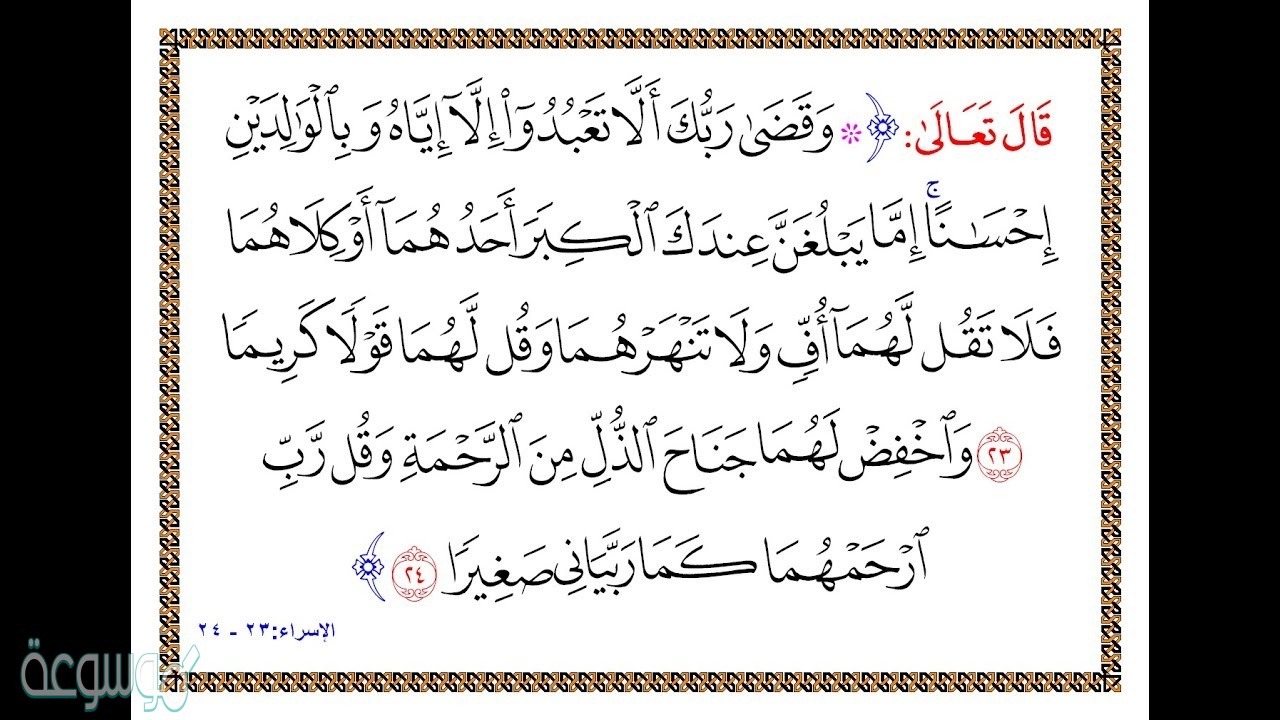 قَالَ تَعَالَىٰ: ﴿ ۞ وَقَضَىٰ رَبُّكَ أَلَّا تَعْبُدُوٓا۟ إِلَّآ إِيَّاهُ وَبِٱلْوَٰلِدَيْنِ
إِحْسَـٰنًا ۚ إِمَّا يَبْلُغَنَّ عِندَكَ ٱلْكِبَرَ أَحَدُهُمَآ أَوْ كِلَاهُمَا
فَلَا تَقُل لَّهُمَآ أُفٍّ وَلَا تَنْهَرْهُمَا وَقُل لَّهُمَا قَوْلًا كَرِيمًا
٢٣ وَٱخْفِضْ لَهُمَا جَنَاحَ ٱلذُّلِّ مِنَ ٱلرَّحْمَةِ وَقُل رَّبِّ
ٱرْحَمْهُمَا كَمَا رَبَّيَانِى صَغِيرًا ٢٤ ﴾
الإسراء: ٢٣ - ٢٤
موسوعة